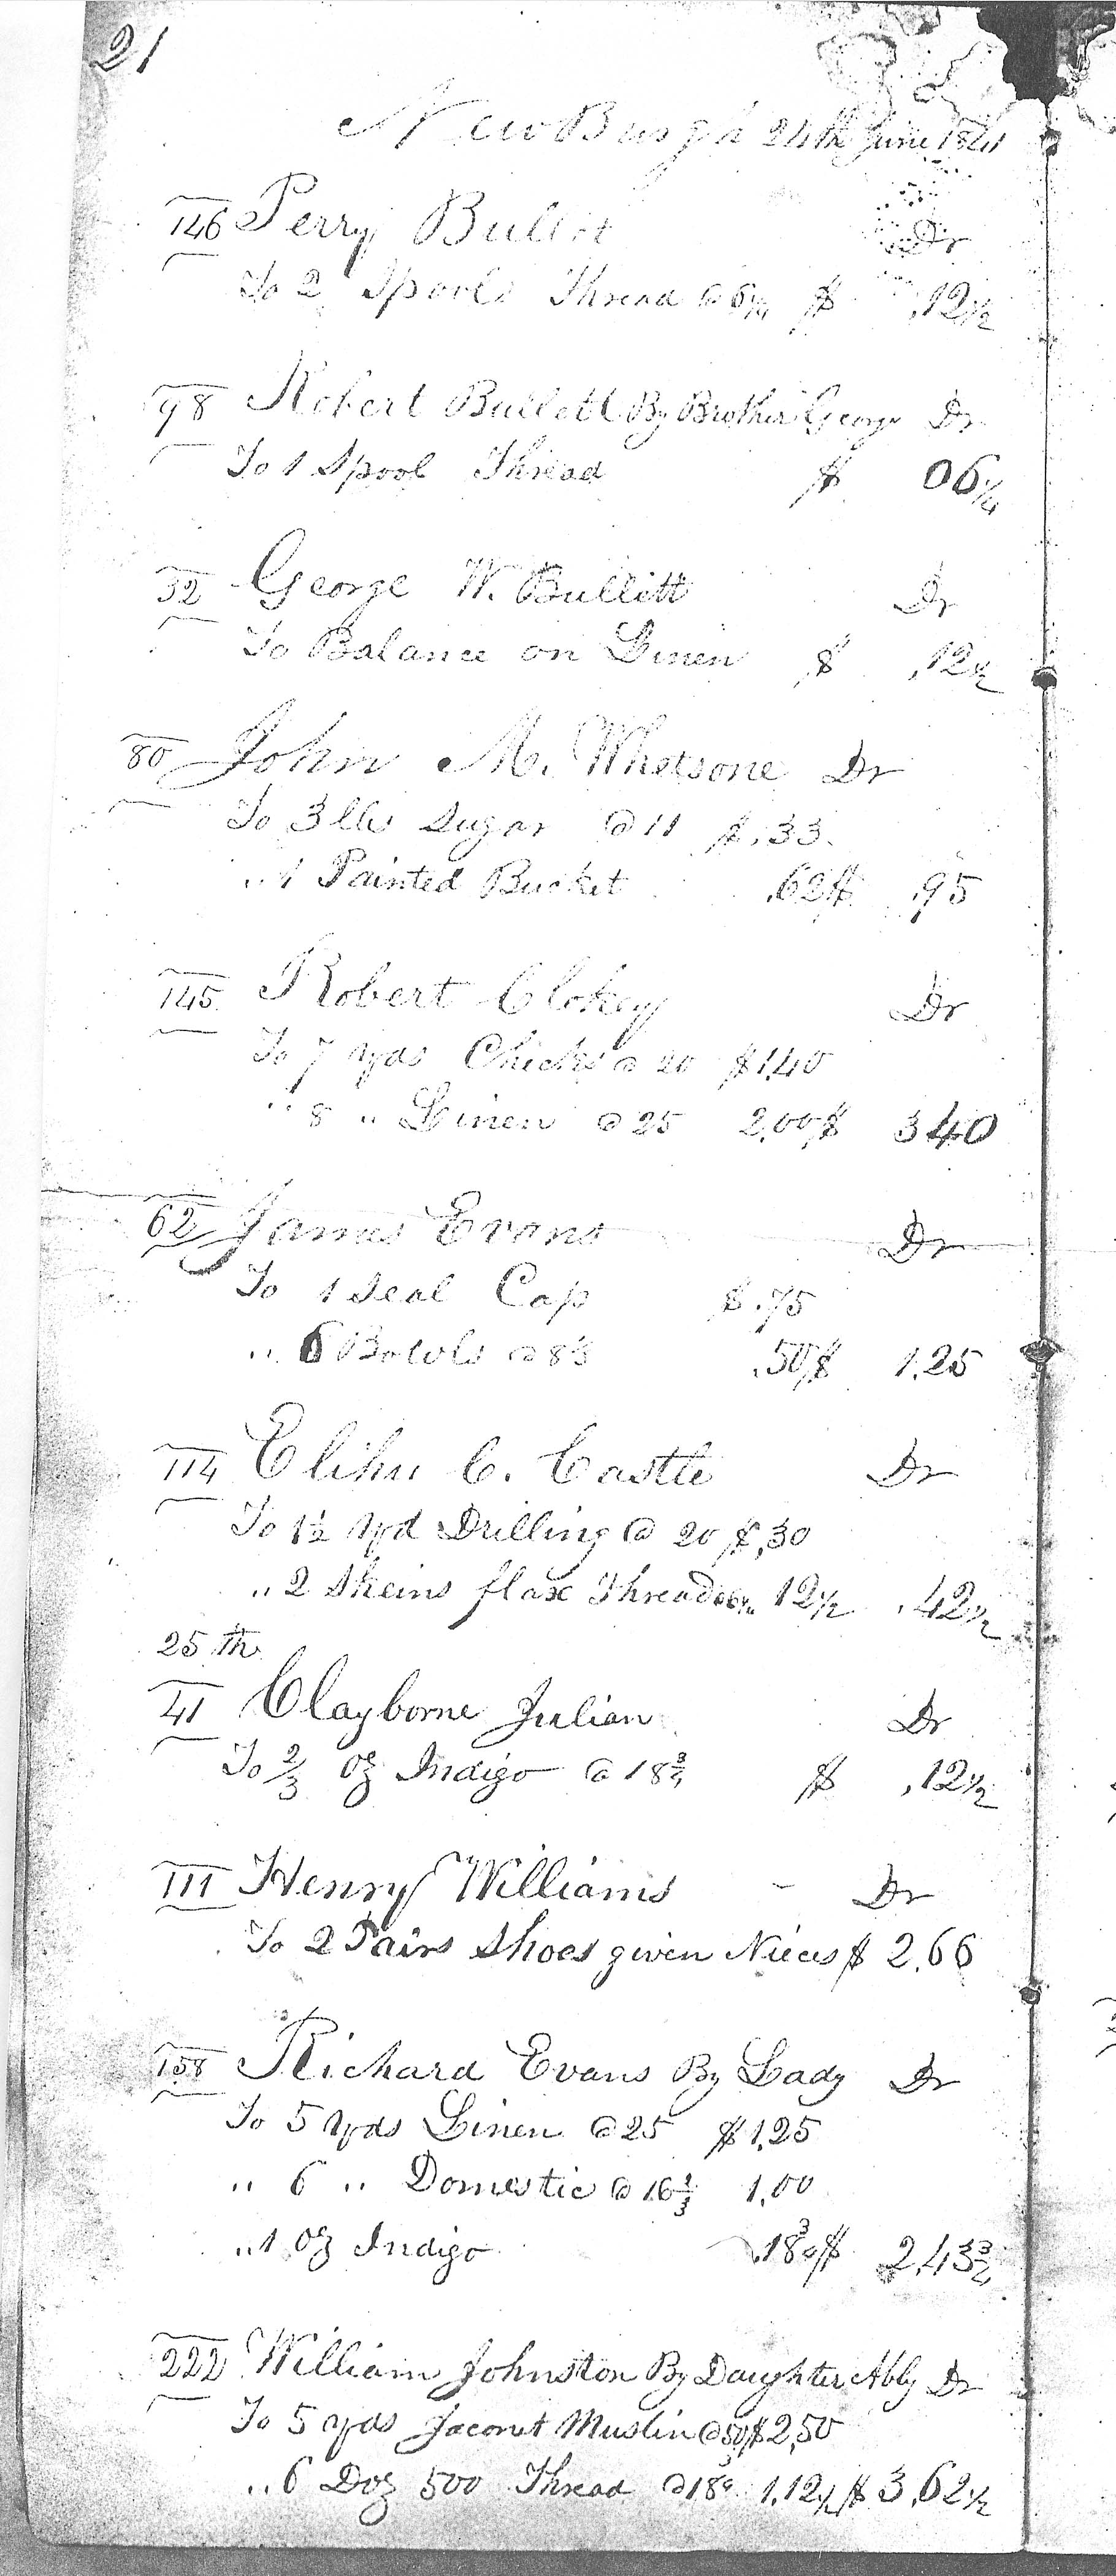 21
NewBurgh 24th June 1841
146 Perry Bullitt Dr
To 2 Spools Thread @ 6¼ $ .12½
98 Robert Bullett By Brother George Dr
To 1 Spool Thread $ 06¼
32 George W. Bullitt Dr
To Balance on Linen $ .12½
80 John M. Whetsone Dr
To 3 lbs Sugar @ 11 $.33.
" 1 Painted Bucket .62 $ .95
145 Robert Clokey Dr
To 7 yds Checks @ 20 $1.40
" 8 " Linen @ 25 2.00 $ 3 40
62 James Evans Dr
To 1 Seal Cap $.75
" 6 Bowls @ 8⅓ .50 $ 1.25
114 Elihu C. Castle Dr
To 1½ yd Drilling @ 20 $.30
" 2 Skeins flax Thread @ 6¼ 12½ .42½
25th
41 Clayborne Julian Dr
To ⅔ oz Indigo @ 18¾ $ .12½
111 Henry Williams - Dr
To 2 Pairs Shoes given Nieces $ 2.66
158 Richard Evans By Lady Dr
To 5 yds Linen @ 25 $1.25
" 6 " Domestic @ 16⅔ 1.00
" 1 oz Indigo .18¾ $ 2.43¾
222 William Johnston By Daughter Abby Dr
To 5 yds Jaconet Muslin @ 50 $2.50
" 6 Doz 500 Thread @ 18¾ 1.12½ $ 3.62½